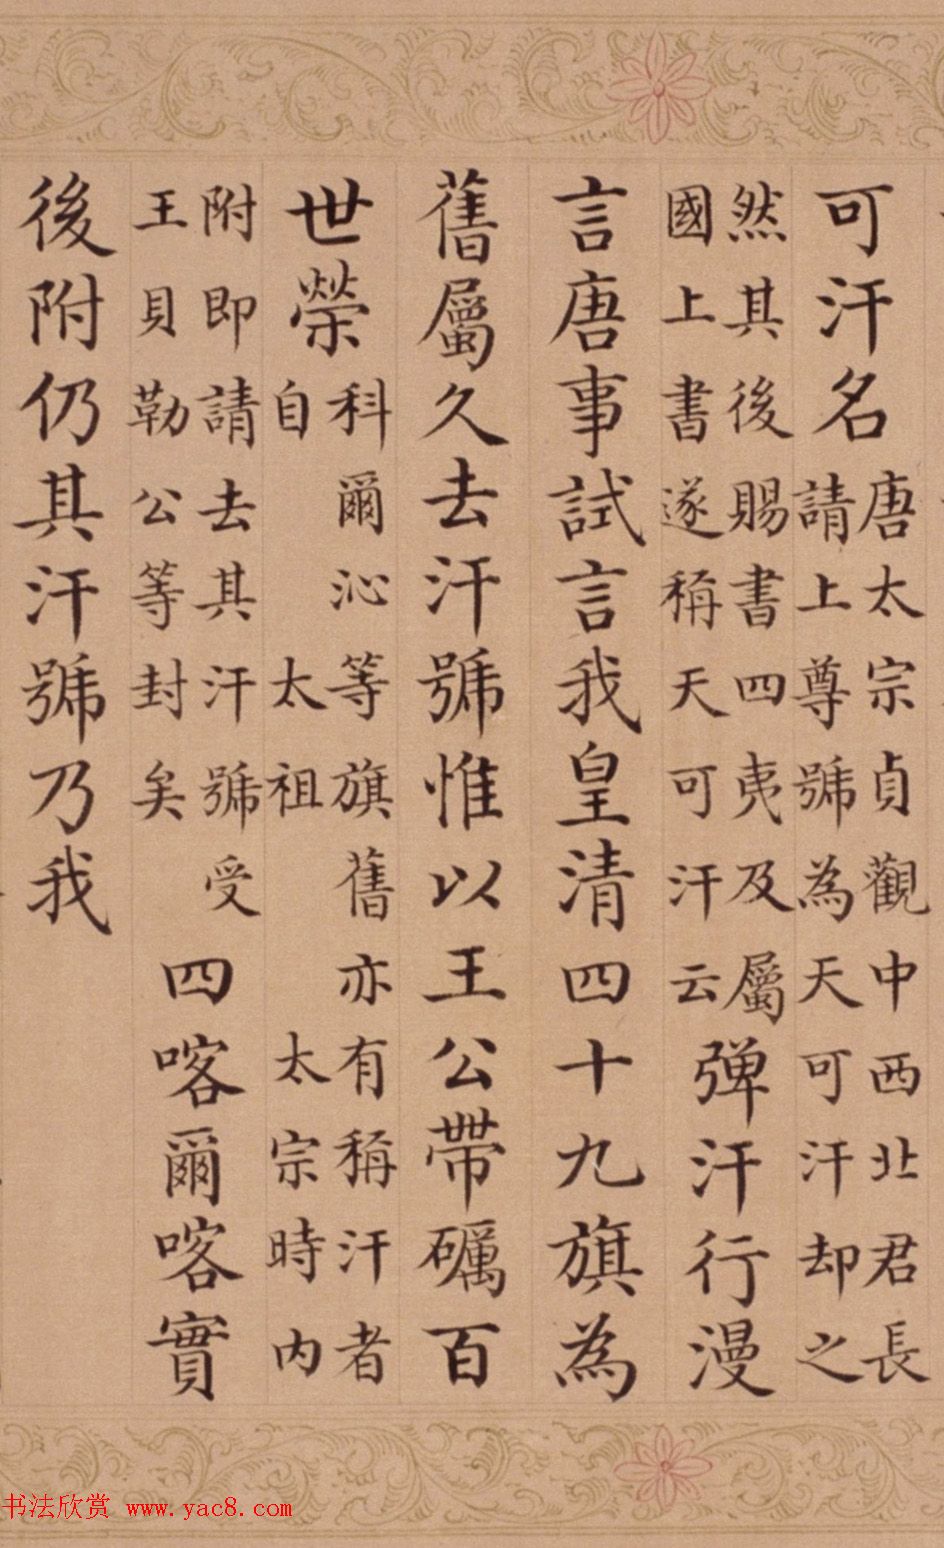 可汗名唐太宗貞觀中西北君長請上尊號為天可汗却之
然其後賜書四夷及屬國上書遂稱天可汗云弹汗行漫
言唐事試言我皇清四十九旗為
舊屬久去汗號惟以王公帶礪百
世榮科爾沁等旗舊亦有稱汗者自太祖太宗時内
附即請去其汗號受王貝勒公等封矣四喀爾喀實
後附仍其汗號乃我
书法欣赏 www.yac8.com